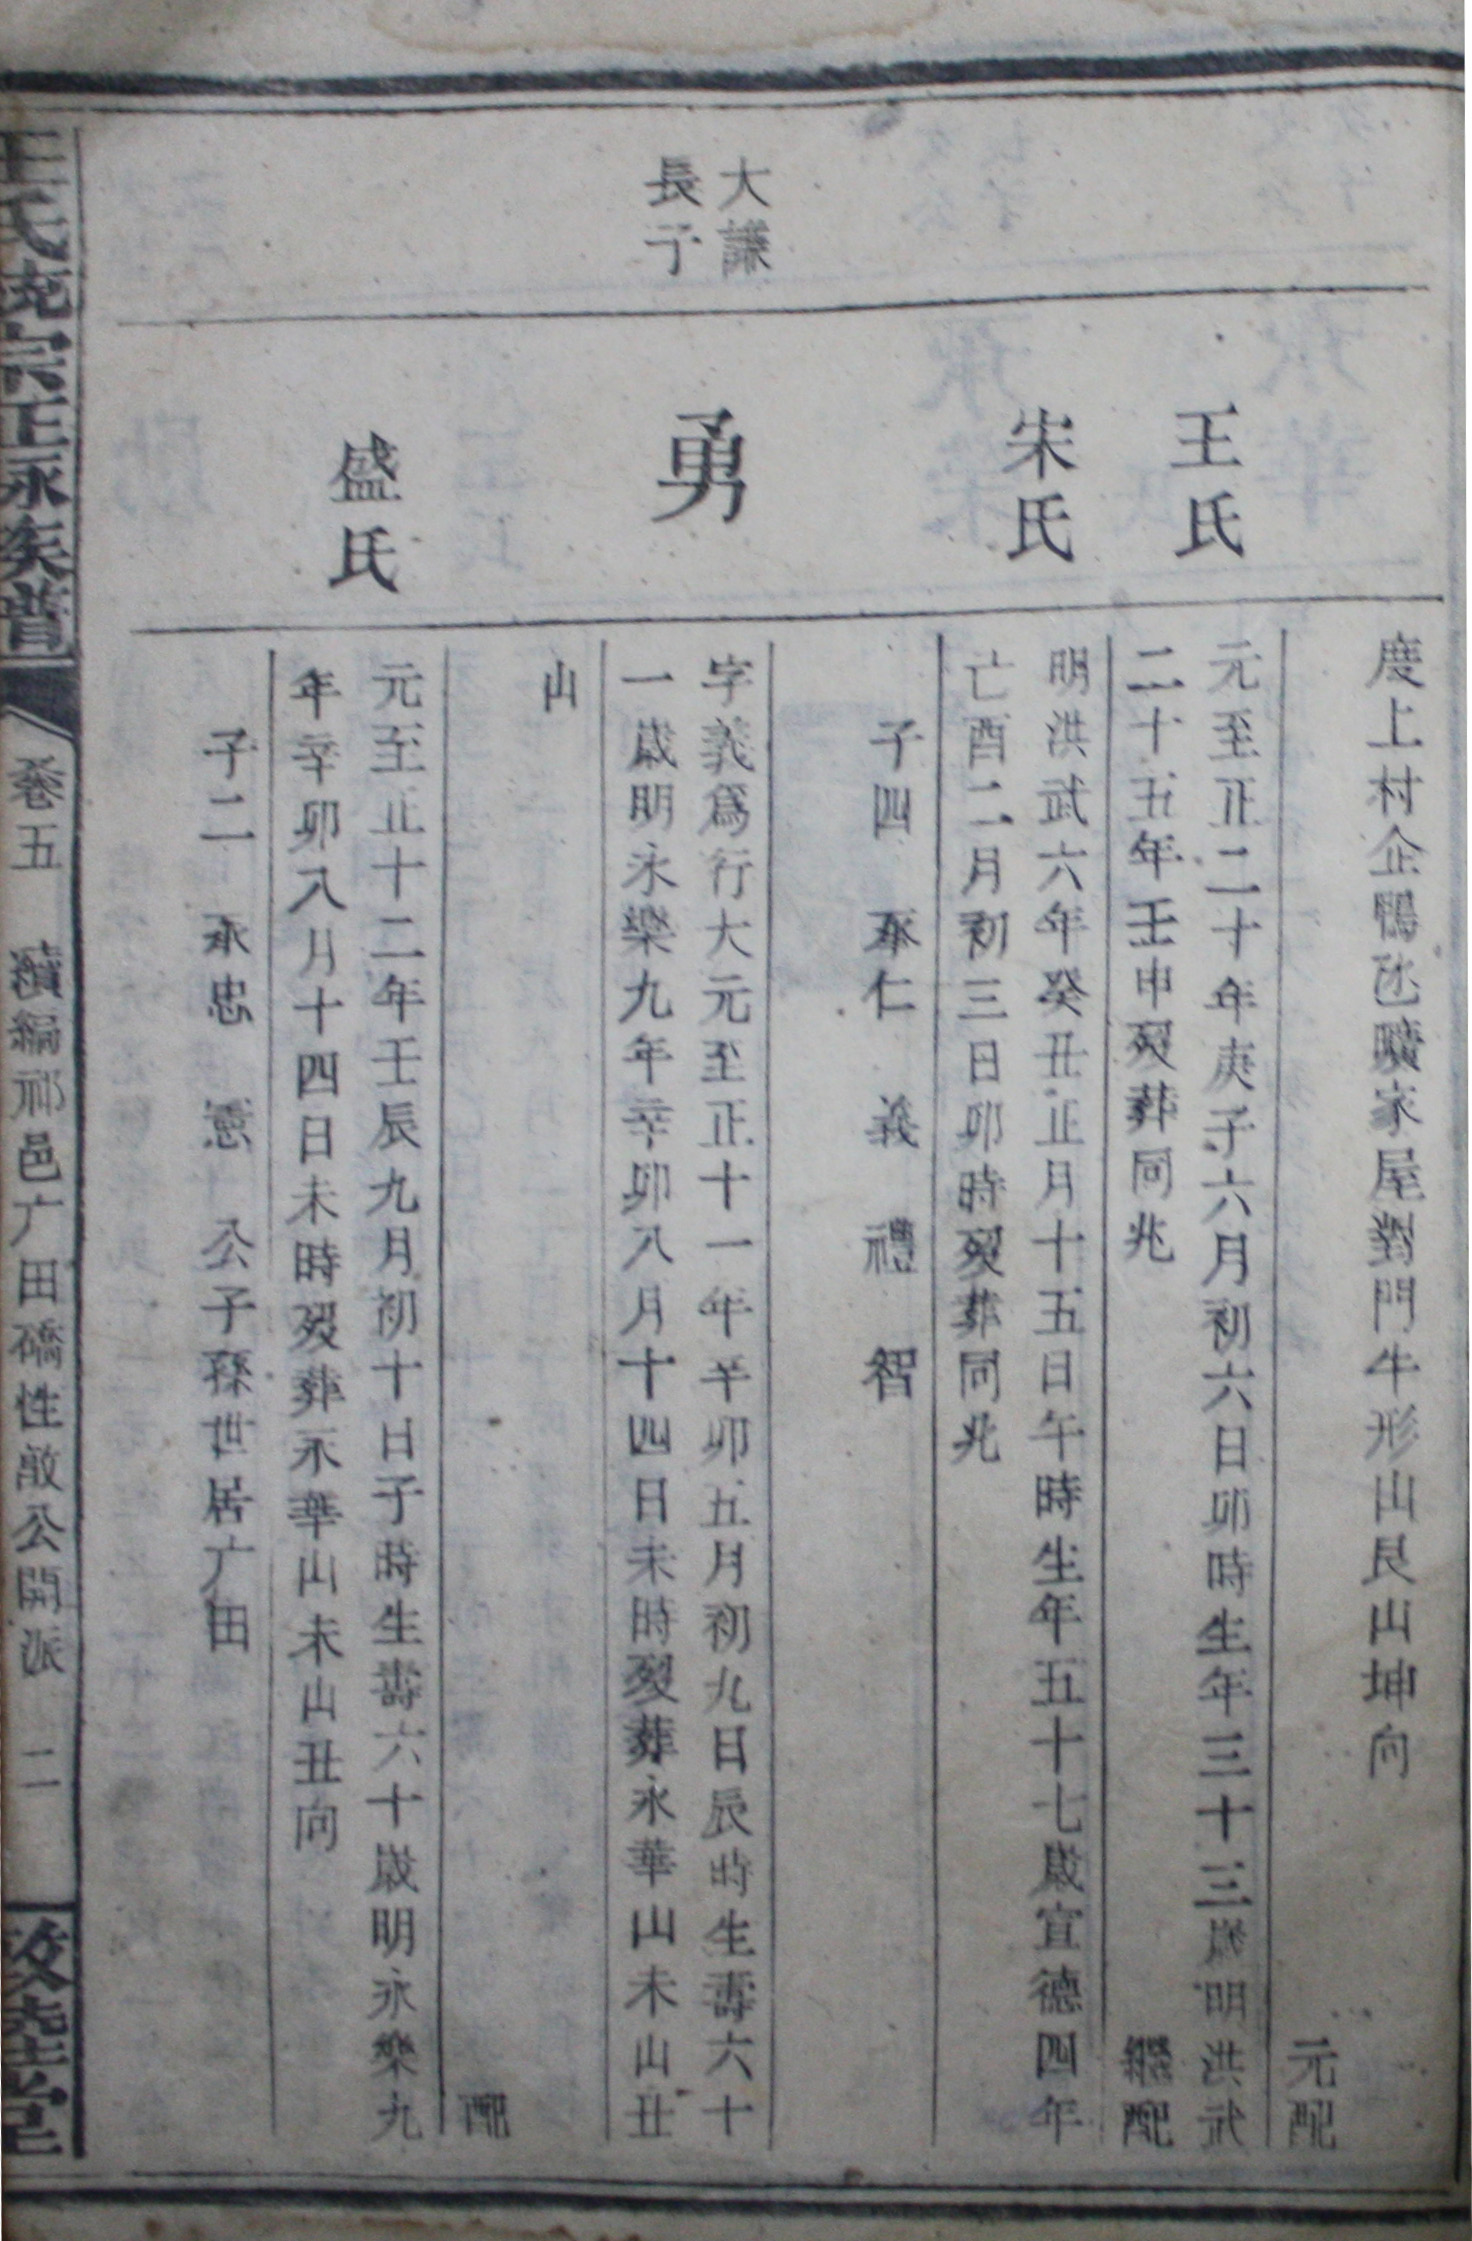 度上村企鴨𠱃曠家屋對門牛形山艮山坤向
元配
王氏
元至正二十年庚子六月初六日卯時生年三十三歲明洪武
二十五年壬申歿葬同兆
繼配
宋氏
明洪武六年癸丑正月十五日午時生年五十七歲宣德四年
亡酉二月初三日卯時歿葬同兆
子四 承仁 義 禮 智
大謙
長子
勇
字義爲行大元至正十一年辛卯五月初九日辰時生壽六十
一歲明永樂九年辛卯八月十四日未時歿葬永華山未山丑
山
配
盛氏
元至正十二年壬辰九月初十日子時生壽六十歲明永樂九
年辛卯八月十四日未時歿葬永華山未山丑向
子二 承忠 憲 公子孫世居广田
王氏統宗正永族譜
卷五 續編祁邑广田礄性敵公開派 二